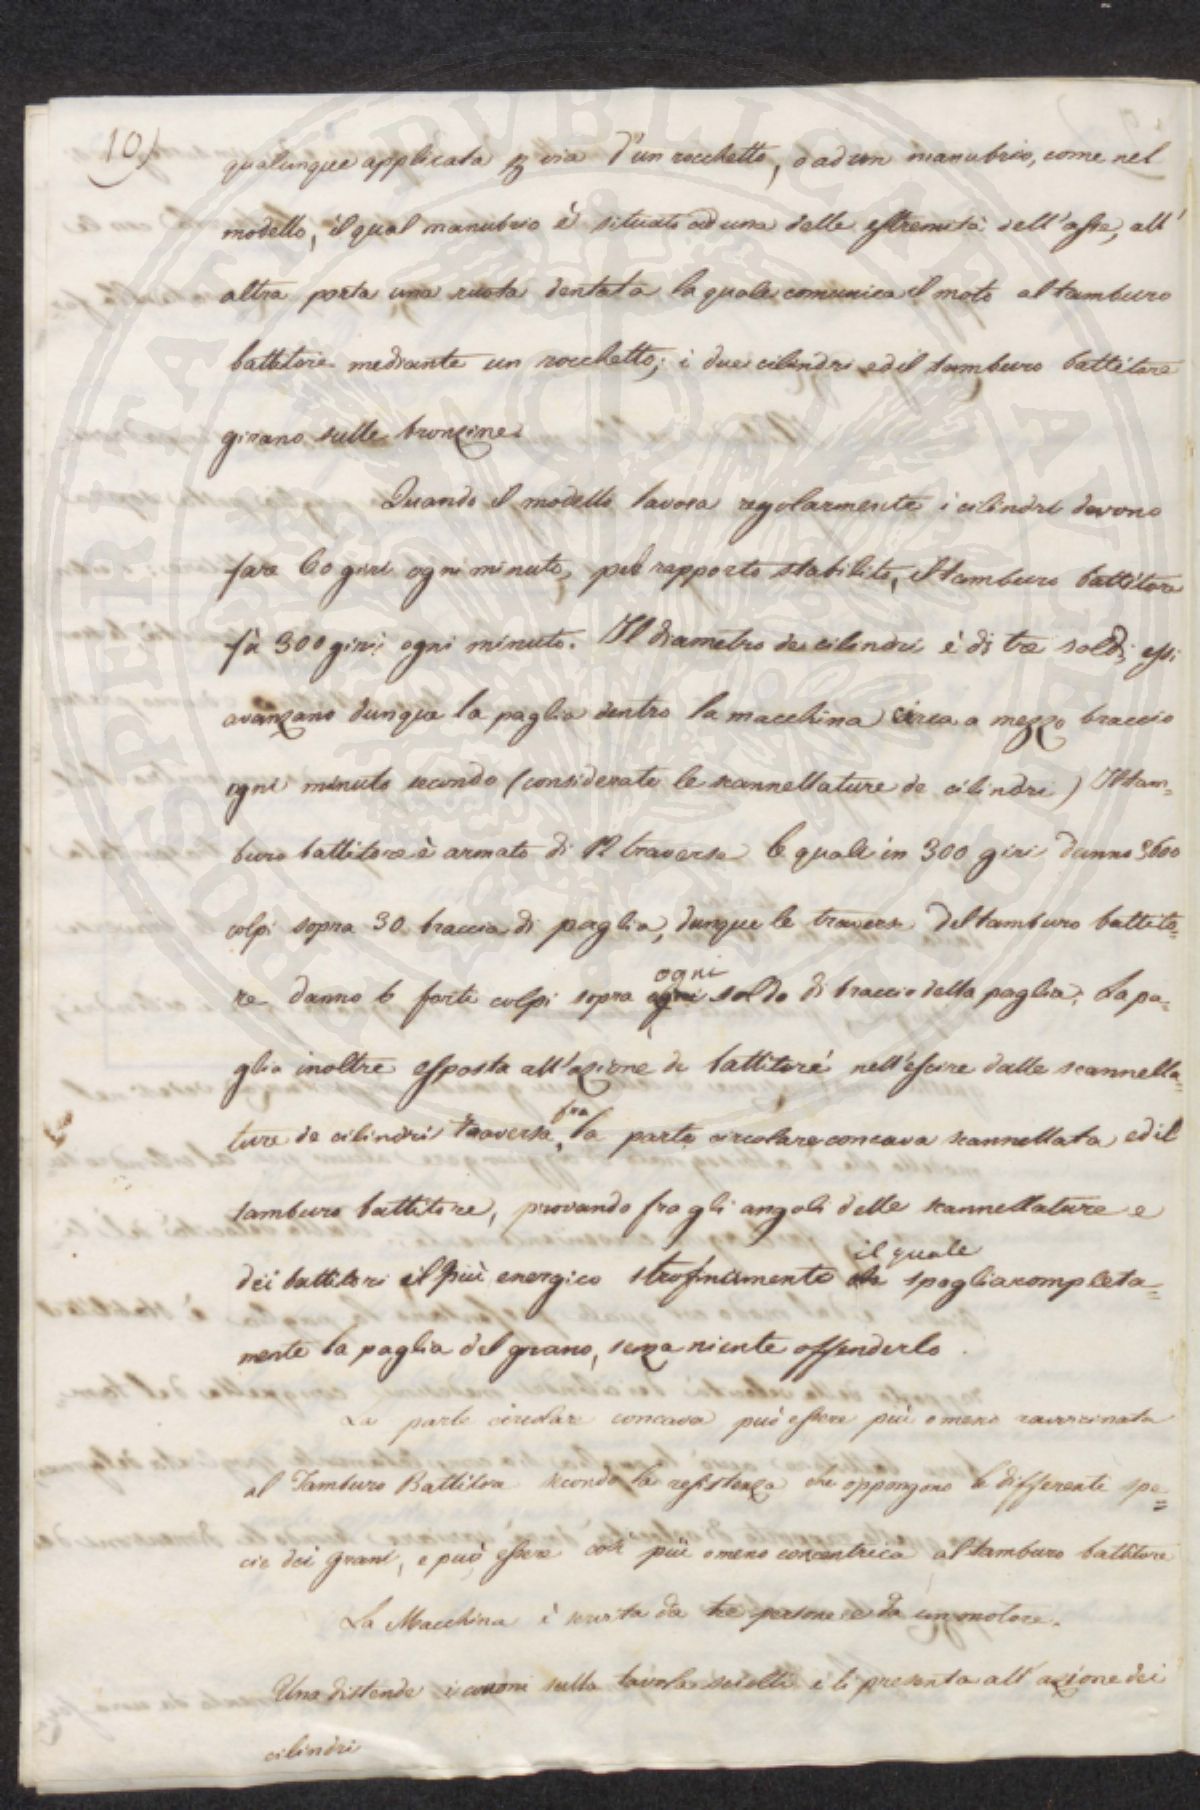 10)
qualunque applicata p via d'un rocchetto, o ad un manubrio, come nel
modello, il qual manubrio è situato ad una delle estremità dell'aste, all'
altra porta una ruota dentata la quale comunica il moto al tamburo
battitore mediante un rocchetto; i due cilindri ed il tamburo battitore
girano sulle bronzine.
Quando il modello lavora regolarmente i cilindri devono
fare 60 giri ogni minuto, pel rapporto stabilito, il tamburo battitore
fà 300 giri ogni minuto. Il diametro de cilindri è di tre soldi, essi
avanzano dunque la paglia dentro la macchina circa a mezzo braccio
ogni minuto secondo (considerate le scannellature de cilindri) Il tam=
buro battitore è armato di 12 traverse le quali in 300 giri danno 3600
colpi sopra 30 braccia di paglia, dunque le traverse del tamburo battito=
re danno 6 forti colpi sopra ogni soldo di braccio della paglia. La pa=
ogni
glia inoltre esposta all'azione de battitori nell'escire dalle scannella=
ture de cilindri traversa, fra la parte circolare concava scannellata ed il
tamburo battitore, provando fra gli angoli delle scannellature e
dei battitori il più energico strofinamento che il quale spoglia completa=
mente la paglia del grano, senza niente offenderlo.
La parte circolare concava può essere più o meno ravvicinata
al Tamburo Battitore secondo la resistenza che oppongono le differenti spe=
cie dei grani, e può essere così più o meno concentrica al tamburo battitore
La Macchina è servita da tre persone e da un motore.
Una distende i covoni sulla tavola sciolti e li presenta all'azione dei
cilindri
PROSPERITATI PUBLICAE AUGENDAE